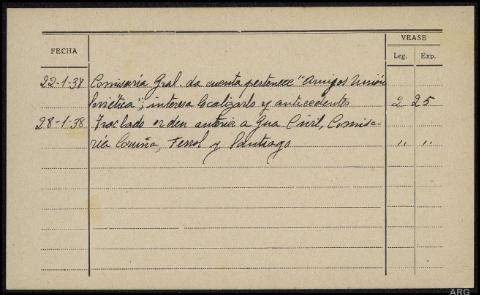 VEASE
FECHA
Leg. Exp.
22-1-37 Comisaría Gral. da cuenta pertenece "Amigos Unión
Soviética"; interesa localizarlo y antecedentes 2 25
28-1-38 Traslado orden anterior a Gua Civil, Comisa-
ría Coruña, Ferrol y Santiago " "
ARG